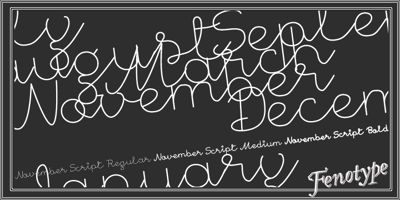 Septem
August March
November
Decem
November Script Regular November Script Medium November Script Bold
January
Fenotype